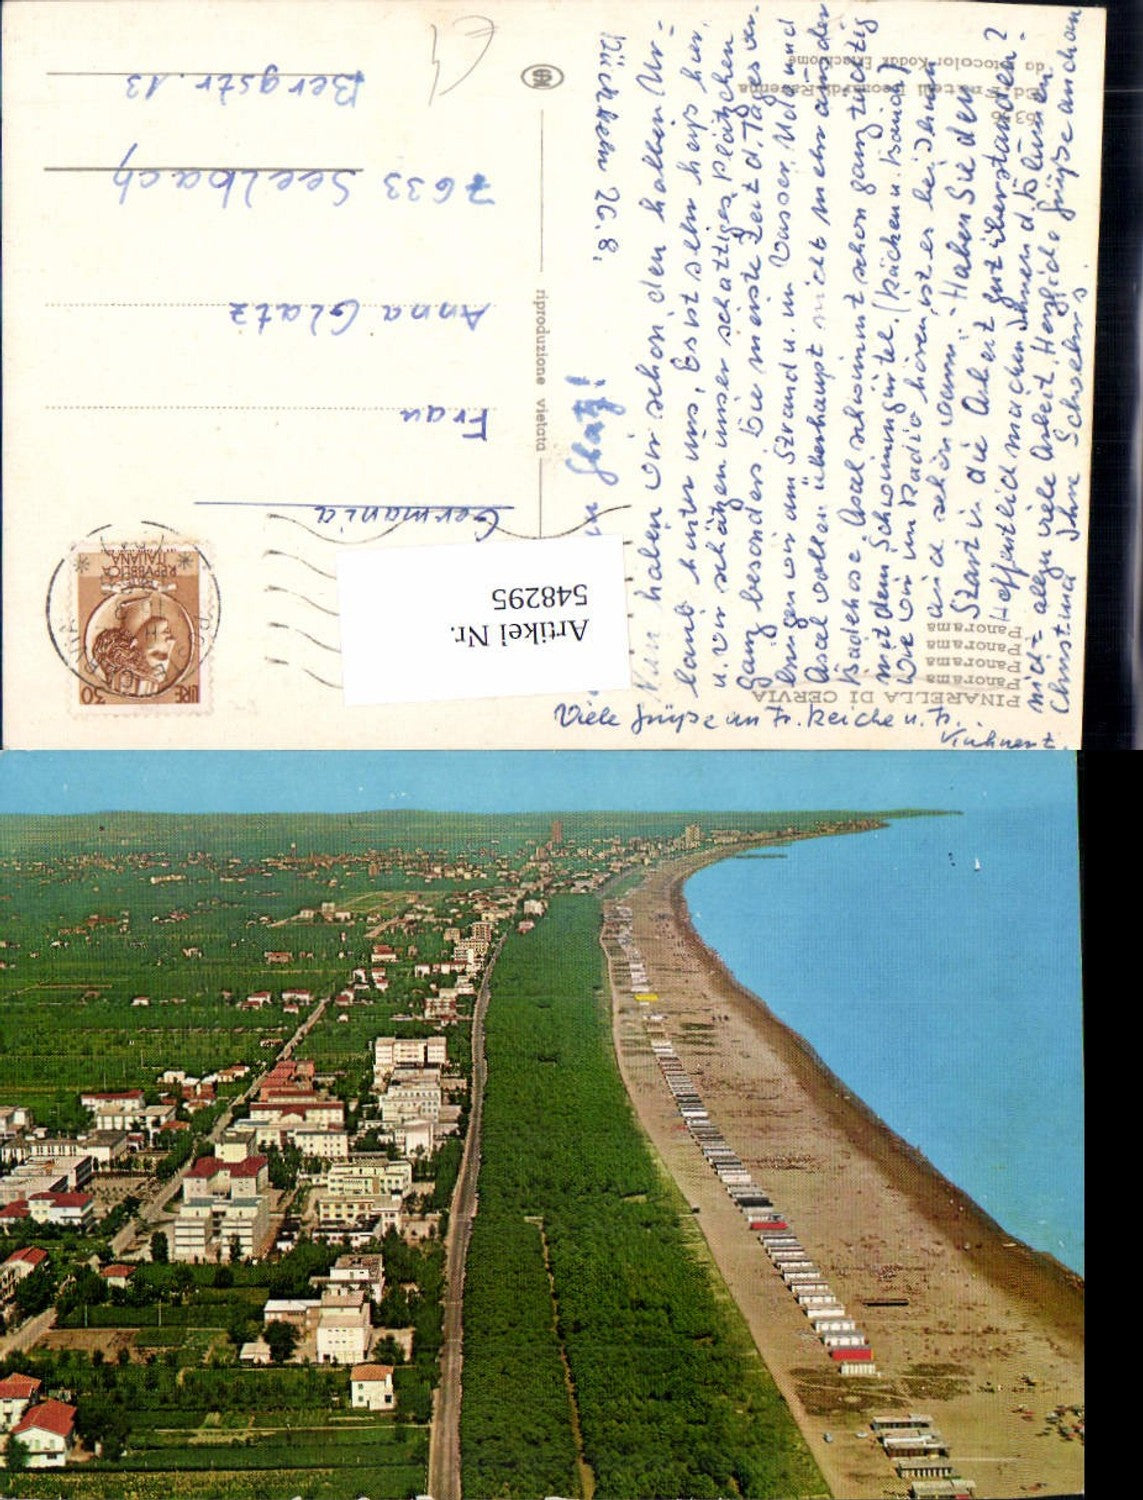 PINARELLA DI CERVIA
Panorama
Panorama
Panorama
Panorama
riproduzione vietata
da fotocolor Kodak Ektachrome
LIRE 30
REPVBBLICA
ITALIANA
Artikel Nr.
548295
Germania
Frau
Anna Glatz
7633 Seelbach
Bergstr. 13
26.8.
Nun haben wir schon den halben Ur-
laub hinter uns. Es ist sehr heiß hier,
u. wir schätzen unser schattiges Plätzchen
ganz besonders. Die meiste Zeit d. Tages ver-
bringen wir am Strand u. im Wasser. Udo und
Axel wollen überhaupt nicht mehr aus der
Badehose. Axel schwimmt schon ganz tüchtig
mit dem Schwimmgürtel.
Wie wir im Radio hören, ist es bei Ihnen
auch schön warm. Haben Sie den
Start in die Arbeit gut überstanden?
Hoffentlich machen Ihnen d. Blumen
nicht allzu viele Arbeit. Herzliche Grüße auch an
Christina Ihre
Viele Grüße an Fr. Reiche u. Fr.